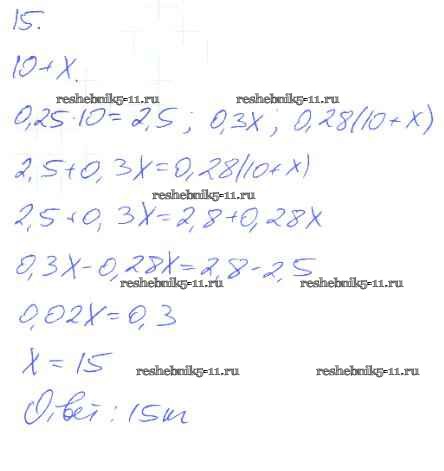 15.
10+x.
reshebnik5-11.ru reshebnik5-11.ru
0,25·10=2,5; 0,3x; 0,28(10+x)
2,5+0,3x=0,28(10+x)
reshebnik5-11.ru
2,5+0,3x=2,8+0,28x
0,3x-0,28x=2,8-2,5
reshebnik5-11.ru reshebnik5-11.ru
0,02x=0,3
x=15
reshebnik5-11.ru reshebnik5-11.ru
Ответ: 15т